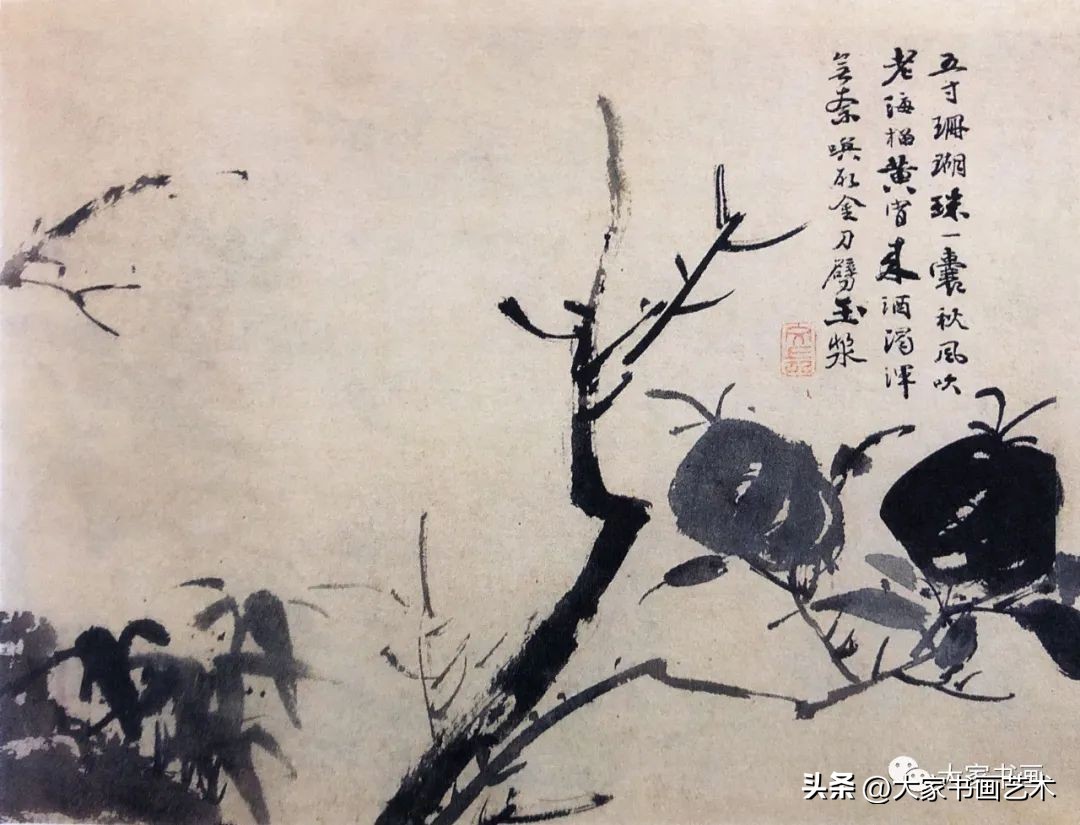 五寸珊瑚珠一囊秋風吹
老海榴黄宵来酒渴渾
無奈喚取金刀劈玉漿
大家书画
头条 @大家书画艺术